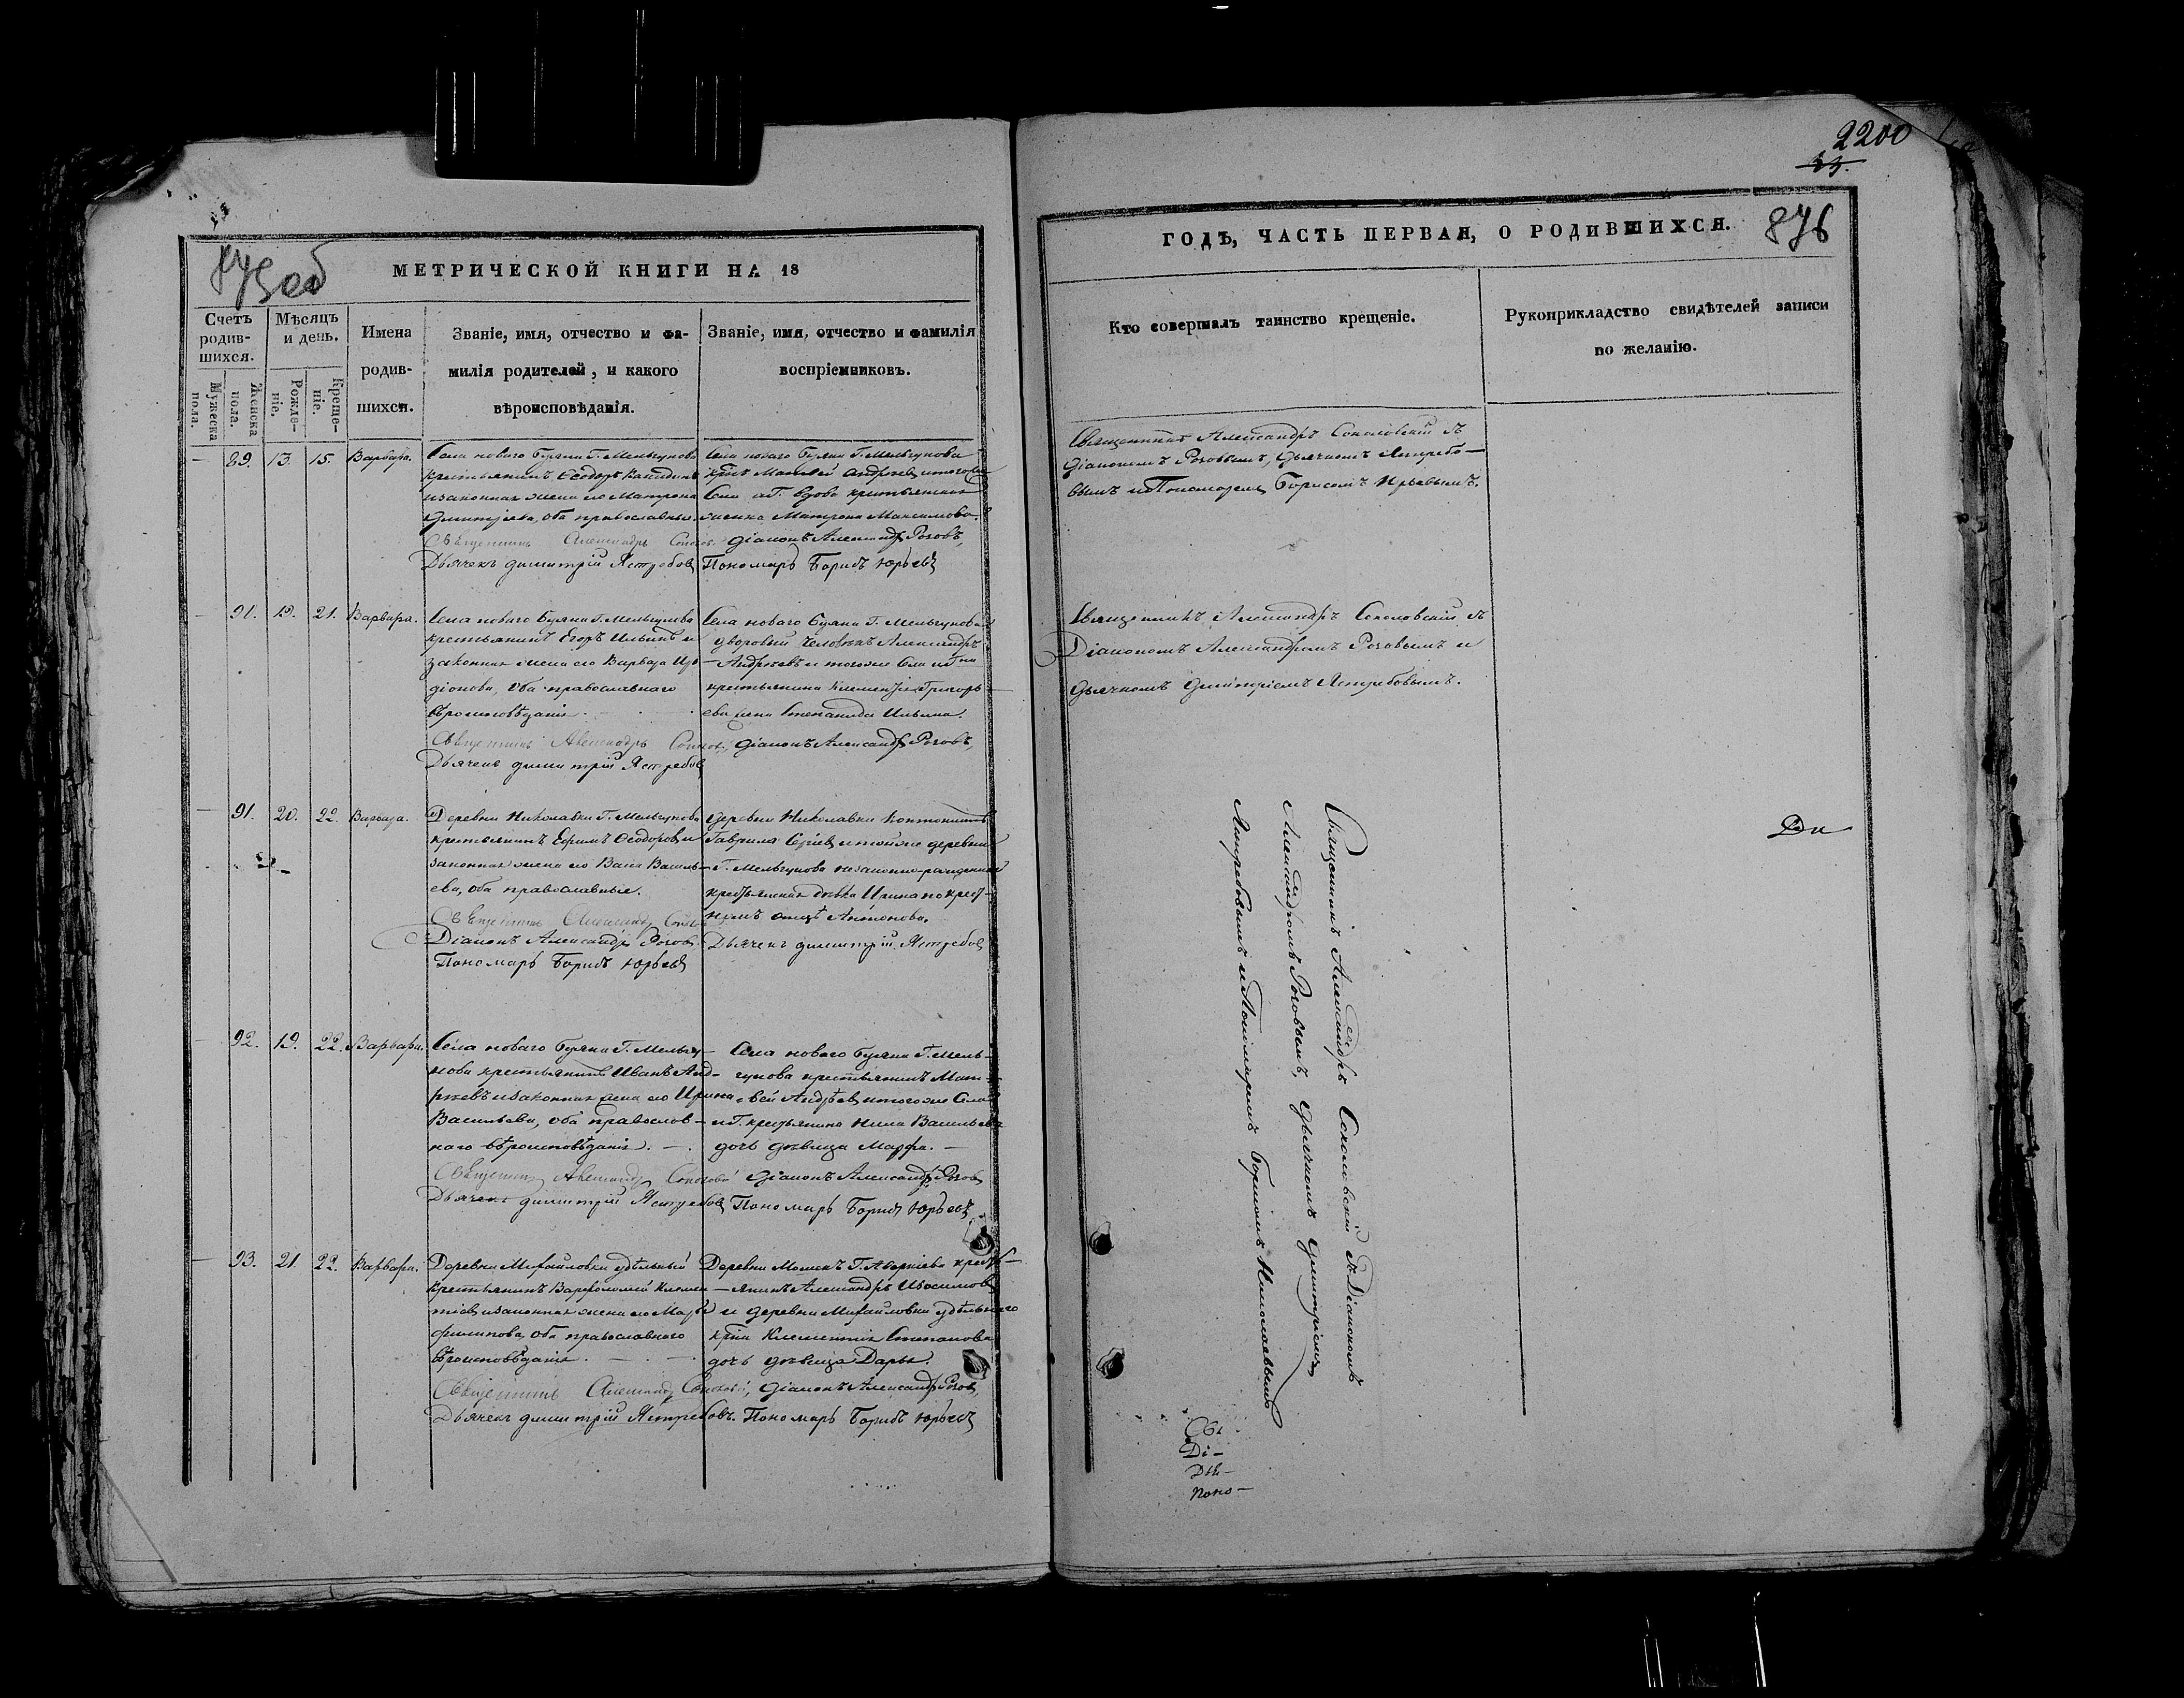 2200
23.
875 об
МЕТРИЧЕСКОЙ КНИГИ НА 18
Счетъ родив-шихся.
Мужеска пола.
Женска пола.
Мѣсяцъ и день.
Рожде-ніе.
Креще-ніе.
Имена
родив-
шихся.
Званіе, имя, отчество и фа-
милія родителей, и какого
вѣроисповѣданія.
Званіе, имя, отчество и фамилія
воспріемниковъ.
89. 13. 15. Варвара.
Села новаго Буяна Г. Мельгунова
крестьянинъ Ѳеодоръ
и законная жена его Матрона
Димитріева, оба православные.
Священникъ Александръ
Дьячекъ Димитрій Ястребовъ
Села новаго Буяна Г. Мельгунова
Матвей Андреевъ и того же
Села и Г. вдова крестьянская
женка Матрона Максимова.
Діаконъ Александръ Роговъ,
Пономарь Борисъ Юрьевъ
91. 19. 21. Варвара.
Села новаго Буяна Г. Мельгунова
крестьянинъ Егоръ Ильинъ и
законная жена его Варвара Иро-
діонова, оба православнаго
вѣроисповѣданія.
Священникъ Александръ
Дьячекъ Димитрій Ястребовъ
Села новаго Буяна Г. Мельгунова
дворовый человѣкъ Александръ
Андреевъ и того же Села и Гна
крестьянина Климентія Григорь-
ева жена Степанида Ильина.
Діаконъ Александръ Роговъ,
91. 20. 22. Варвара.
Деревни Николавки Г. Мельгунова
крестьянинъ Ефимъ Ѳеодоровъ и
законная жена его Василь-
ева, оба православные.
Священникъ Александръ
Діаконъ Александръ Роговъ
Пономарь Борисъ Юрьевъ
деревни Николавки
Гаврила и той же деревни
Г. Мельгунова незаконно-рожденная
крестьянская дѣвка Ирина по крест-
номъ отцѣ Антонова.
Дьячекъ Димитрій Ястребовъ
92. 19. 22. Варвара.
Села новаго Буяна Г. Мельгу-
нова крестьянинъ Иванъ Анд-
реевъ и законная жена его Ирина
Васильева, оба православ-
наго вѣроисповѣданія.
Священникъ Александръ
Дьячекъ Димитрій Ястребовъ
Села новаго Буяна Г. Мель-
гунова крестьянинъ Мат-
вей Андреевъ и того же Села
и Г. крестьянина Нила Васильева
дочь дѣвица Марфа.
Діаконъ Александръ Роговъ
Пономарь Борисъ Юрьевъ
93. 21. 22. Варвара.
Деревни Михайловки удѣльный
крестьянинъ Варфоломей Климен-
тіевъ и законная жена его
Филипова, оба православнаго
вѣроисповѣданія.
Священникъ Александръ
Дьячекъ Димитрій Ястребовъ.
Деревни Г. крестья-
янинъ Александръ
и деревни Михайловки удѣльнаго
Климентія Степанова
дочь дѣвица Дарья.
Діаконъ Александръ Роговъ,
Пономарь Борисъ Юрьевъ
ГОДЪ, ЧАСТЬ ПЕРВАЯ, О РОДИВШИХСЯ.
876
Кто совершалъ таинство крещеніе.
Рукоприкладство свидѣтелей записи
по желанію.
Священникъ Александръ Соколовскій съ
Діакономъ Роговымъ, Дьячкомъ Ястребо-
вымъ и Пономаремъ Борисомъ Юрьевымъ.
Священникъ Александръ Соколовскій съ
Діакономъ Александромъ Роговымъ и
Дьячкомъ Димитріемъ Ястребовымъ.
Священникъ Александръ Соколовскій съ Діакономъ
Александромъ Роговымъ, Дьячкомъ Димитріемъ
Ястребовымъ и Пономаремъ Борисомъ
Ді-
Дья-
Поно-